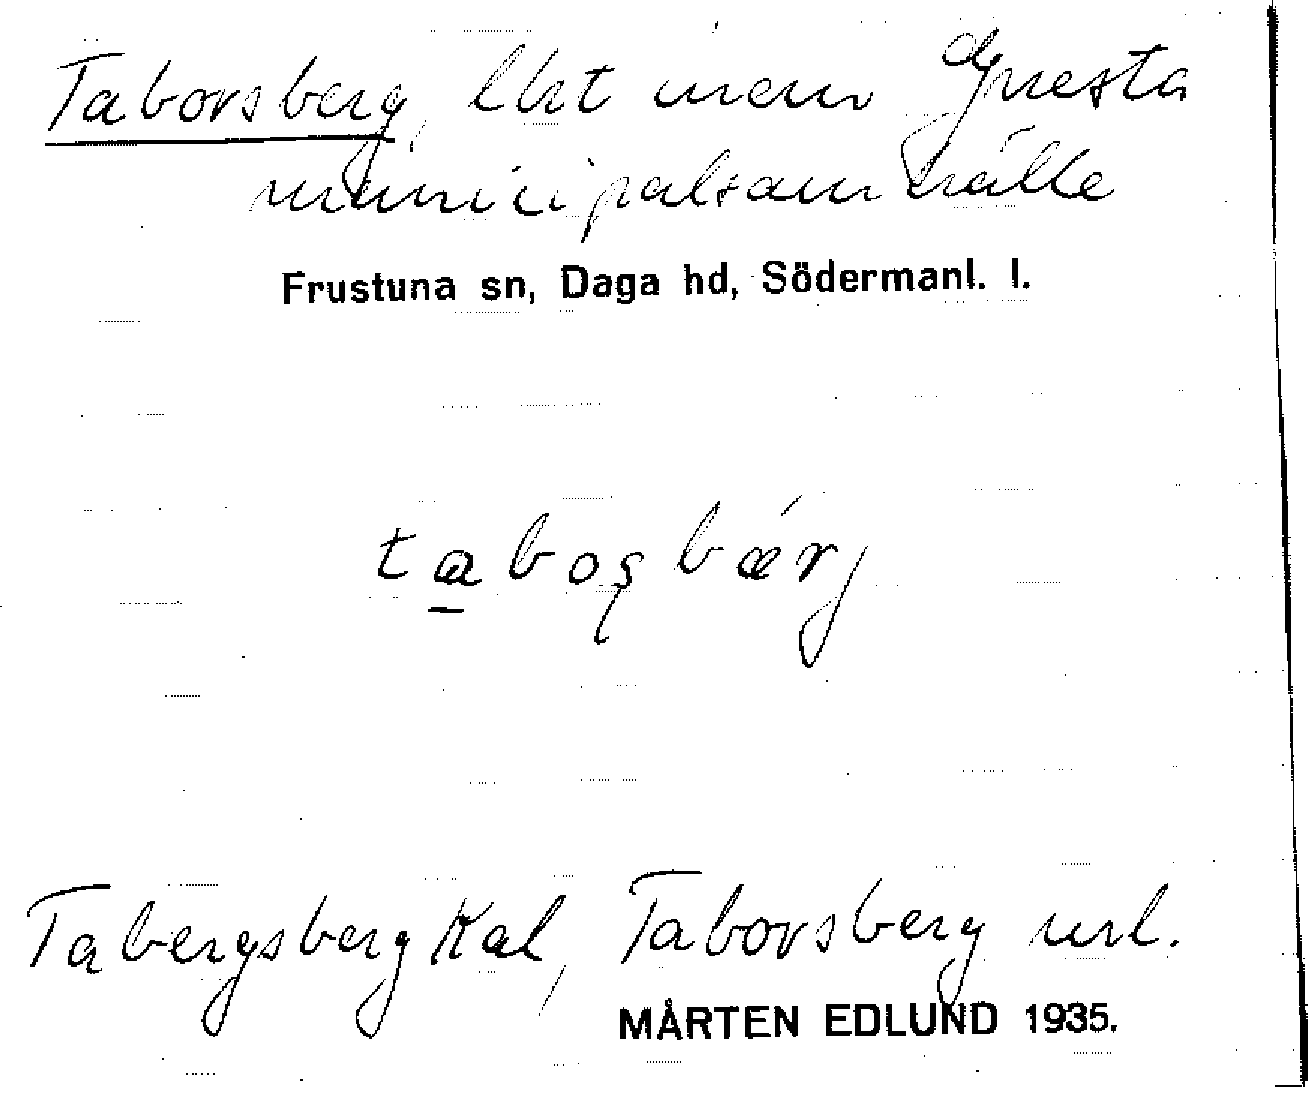 Taborsberg, lht inom Gnesta
municipalsamhälle
Frustuna sn, Daga hd, Södermanl. l.
taboʂbærj
Tabergsberg Kal, Taborsberg url.
MÅRTEN EDLUND 1935.